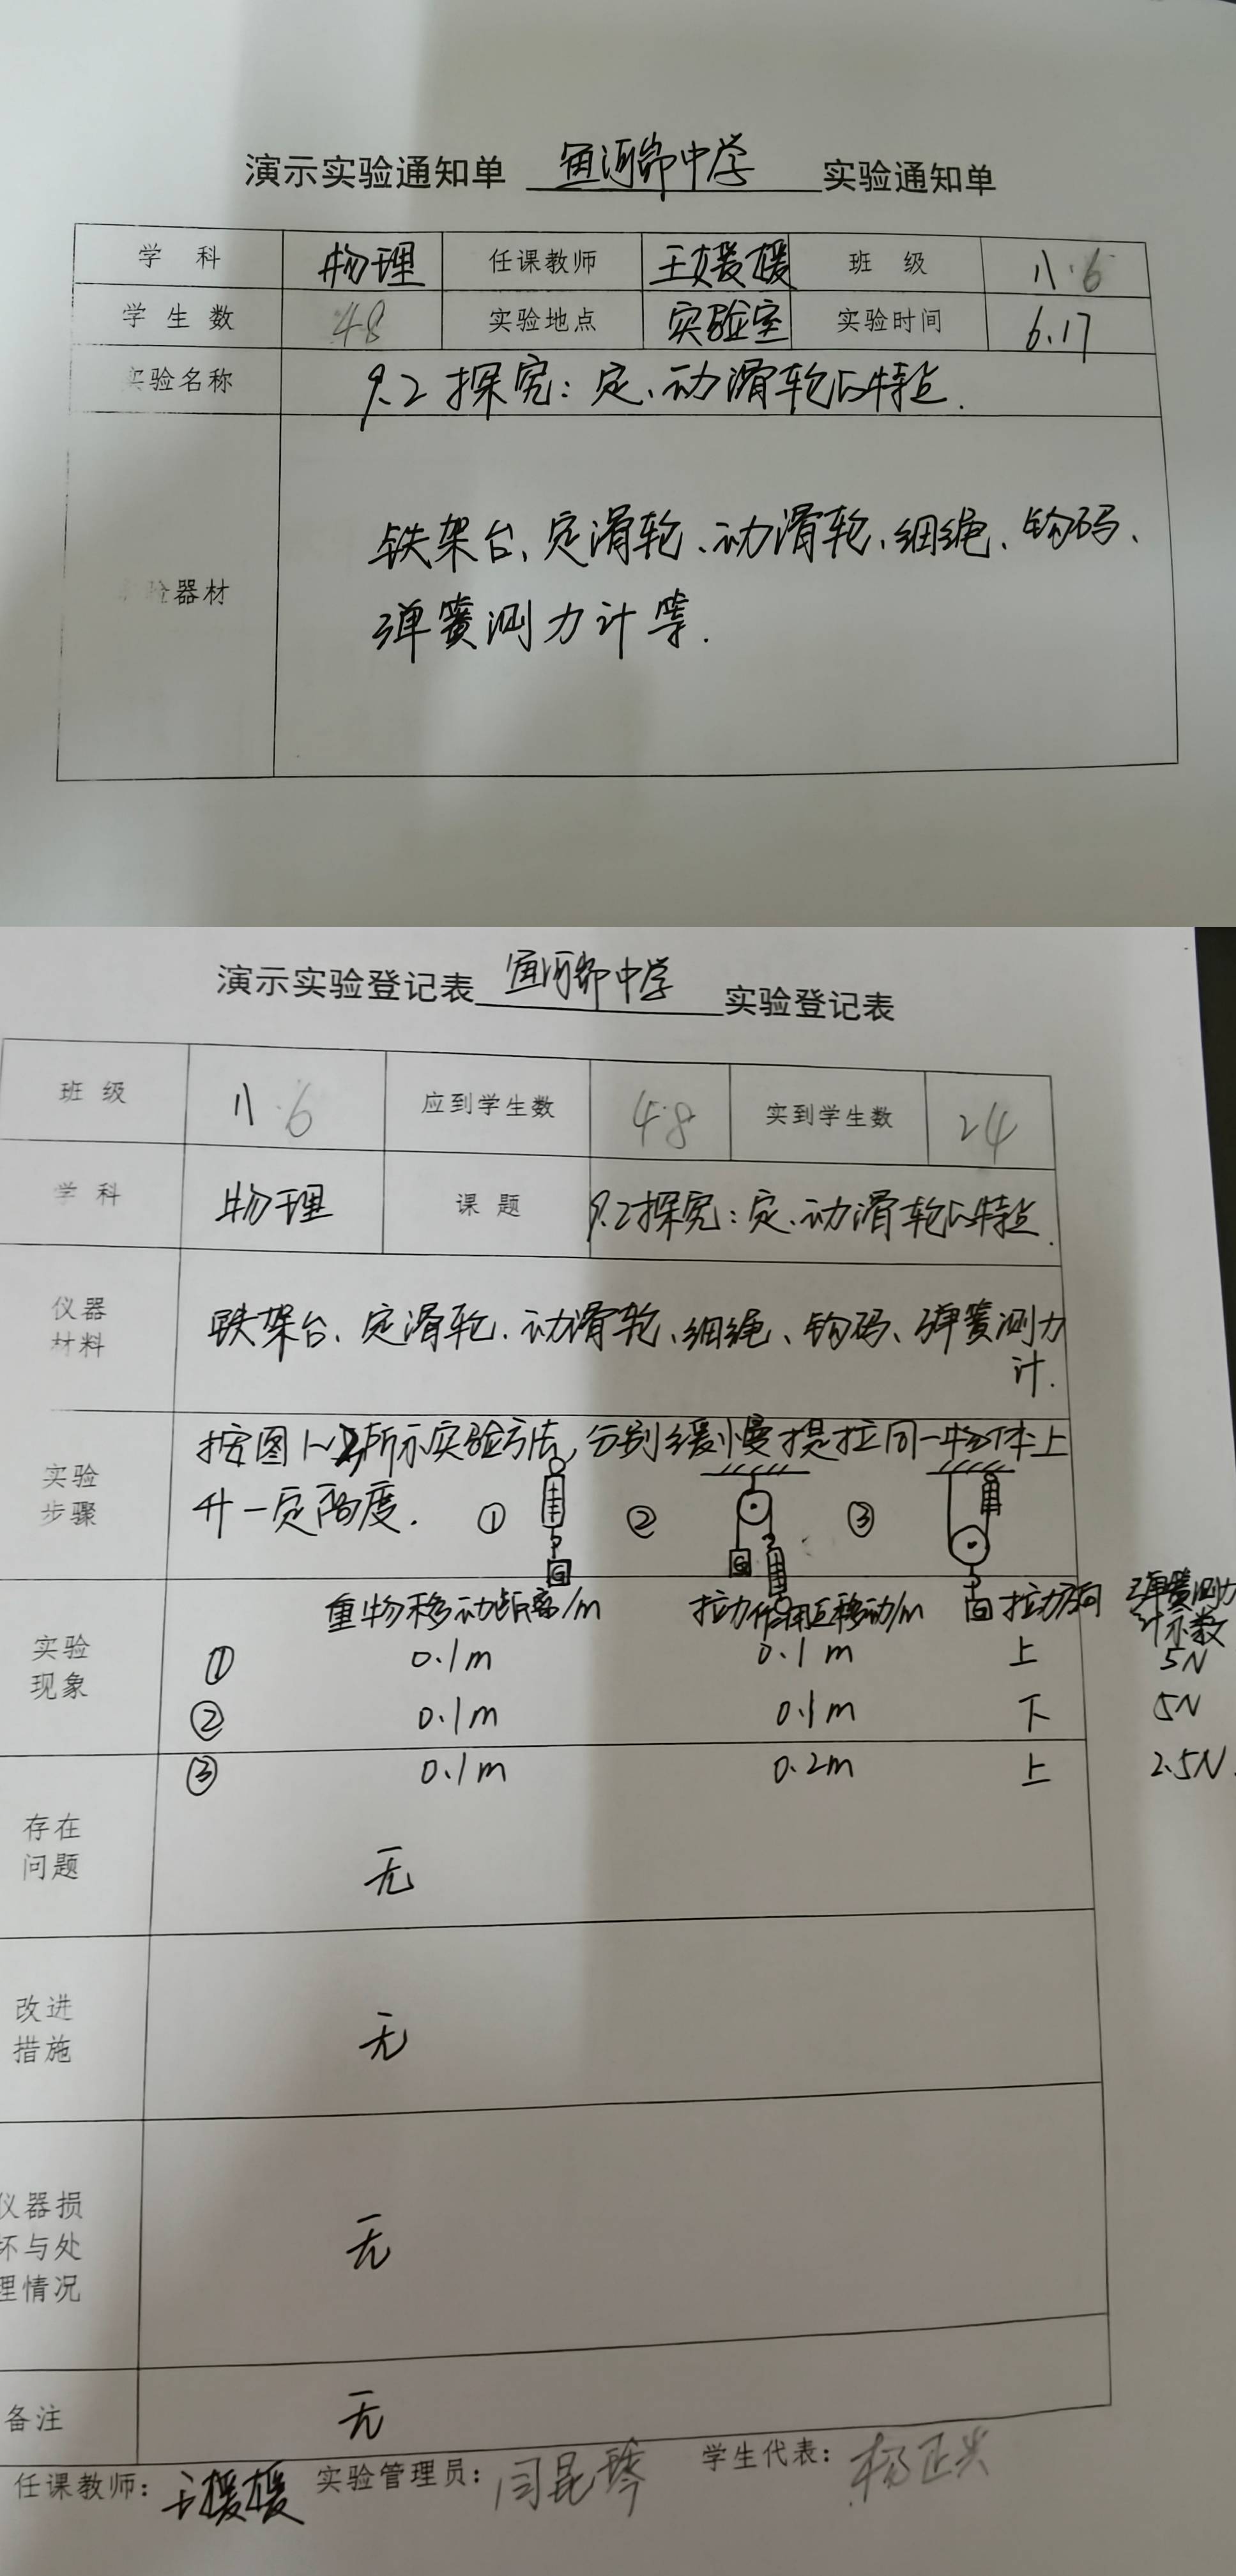 演示实验通知单 鱼河峁中学 实验通知单
学 科 物理 任课教师 王媛媛 班 级 八.6
学 生 数 48 实验地点 实验室 实验时间 6.17
实验名称 9.2 探究:定、动滑轮的特点.
铁架台、定滑轮、动滑轮、细绳、钩码、
实验器材
弹簧测力计等.
演示实验登记表 鱼河峁中学 实验登记表
班 级 八.6 应到学生数 48 实到学生数 24
学 科 物理 课 题 9.2探究:定、动滑轮的特点.
仪器
材料
铁架台、定滑轮、动滑轮、细绳、钩码、弹簧测力
计.
实验
步骤
按图1~3所示实验方法,分别缓慢提拉同一物体上
升一定高度. ① ② ③
G
G
实验
现象
重物移动距离/m 拉力作用点移动/m 拉力方向 弹簧测力
计示数
① 0.1m 0.1m 上 5N
② 0.1m 0.1m 下 5N
③ 0.1m 0.2m 上 2.5N.
存在
问题
无
改进
措施
无
仪器损
坏与处
理情况
无
备注 无
任课教师: 王媛媛 实验管理员: 闫昆琴 学生代表: 杨正兴